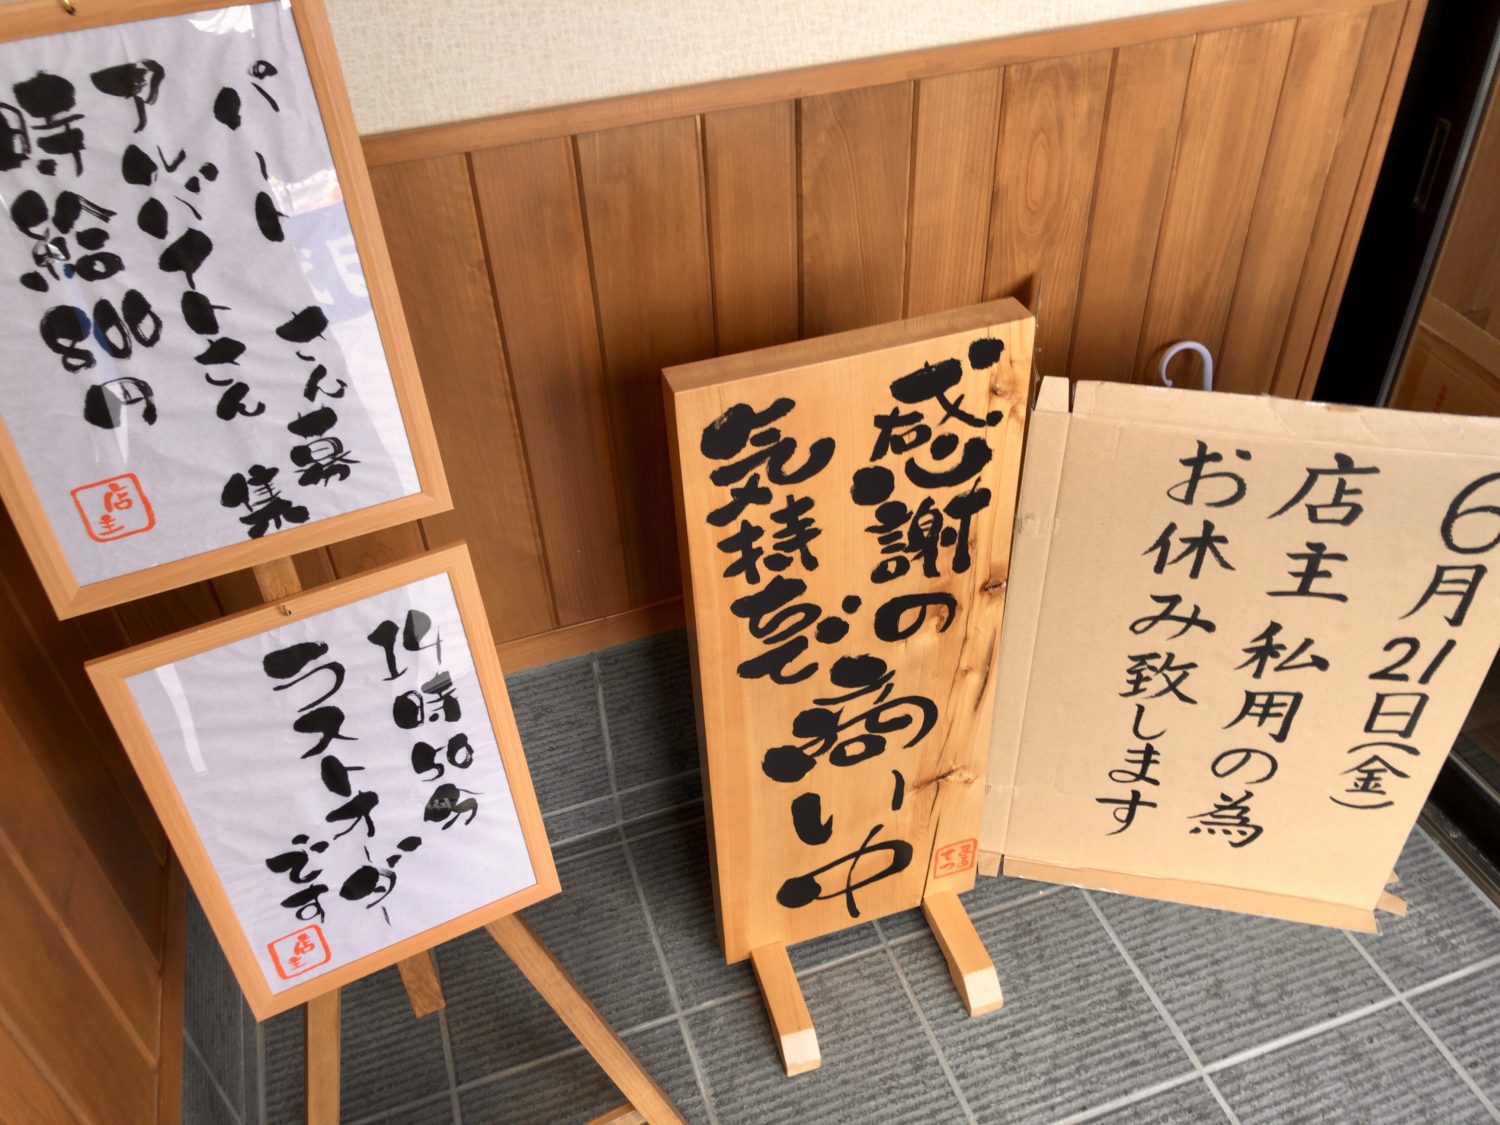 パート さん募集
アルバイトさん
時給800円
店主
14時50分
ラストオーダー
です
店主
感謝の商い中
気持ちで
6月21日(金)
店主 私用の為
お休み致します